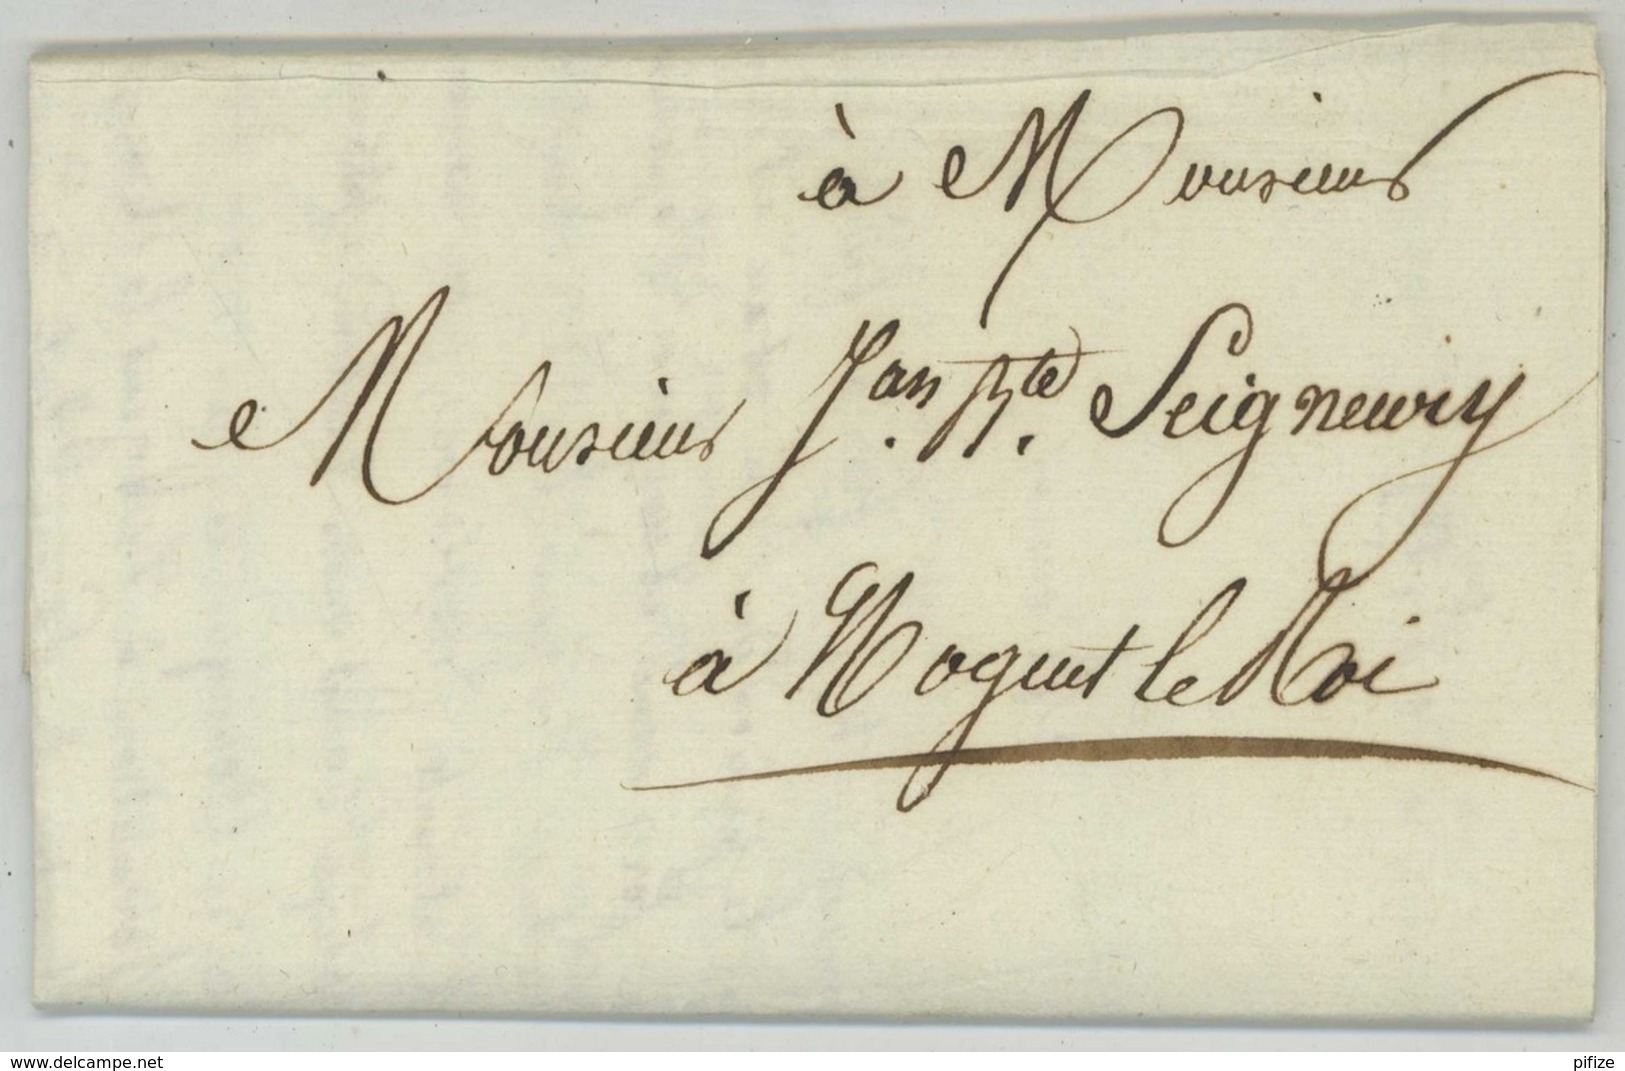 à Monsieur
Monsieur Jan. Bte. Seigneury
à Nogent le Roi
www.delcampe.net
pifize